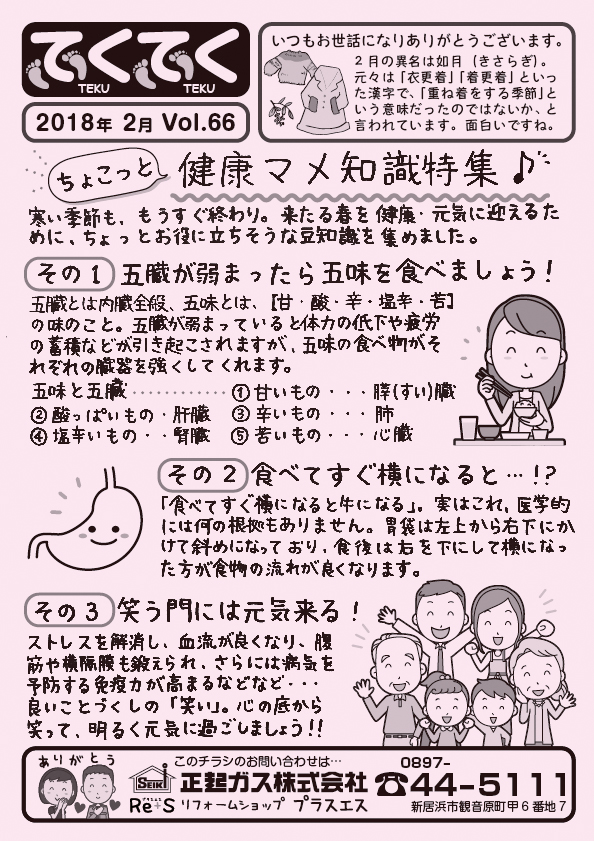 てくてく
TEKU TEKU
2018年 2月 Vol.66
いつもお世話になりありがとうございます。
2月の異名は如月(きさらぎ)。
元々は「衣更着」「着更着」といっ
た漢字で、「重ね着をする季節」と
いう意味だったのではないか、と
言われています。面白いですね。
ちょこっと 健康マメ知識特集♪
寒い季節も、もうすぐ終わり。来たる春を健康・元気に迎えるた
めに、ちょっとお役に立ちそうな豆知識を集めました。
その1 五臓が弱まったら五味を食べましょう!
五臓とは内臓全般、五味とは、[甘・酸・辛・塩辛・苦]
の味のこと。五臓が弱まっていると体力の低下や疲労
の蓄積などが引き起こされますが、五味の食べ物がそ
れぞれの臓器を強くしてくれます。
五味と五臓 ・・・・・・・・・・・・・ ①甘いもの・・・脾(すい)臓
②酸っぱいもの・肝臓 ③辛いもの・・・肺
④塩辛いもの・・腎臓 ⑤苦いもの・・・心臓
その2 食べてすぐ横になると…!?
「食べてすぐ横になると牛になる」。実はこれ、医学的
には何の根拠もありません。胃袋は左上から右下にか
けて斜めになっており、食後は右を下にして横になっ
た方が食物の流れが良くなります。
その3 笑う門には元気来る!
ストレスを解消し、血流が良くなり、腹
筋や横隔膜も鍛えられ、さらには病気を
予防する免疫力が高まるなどなど・・・
良いことづくしの「笑い」。心の底から
笑って、明るく元気に過ごしましょう!!
ありがとう
このチラシのお問い合わせは…
SEIKI 正起ガス株式会社
0897-
☎44-5111
プラスエス
Re+S リフォームショップ プラスエス
新居浜市観音原町甲6番地7